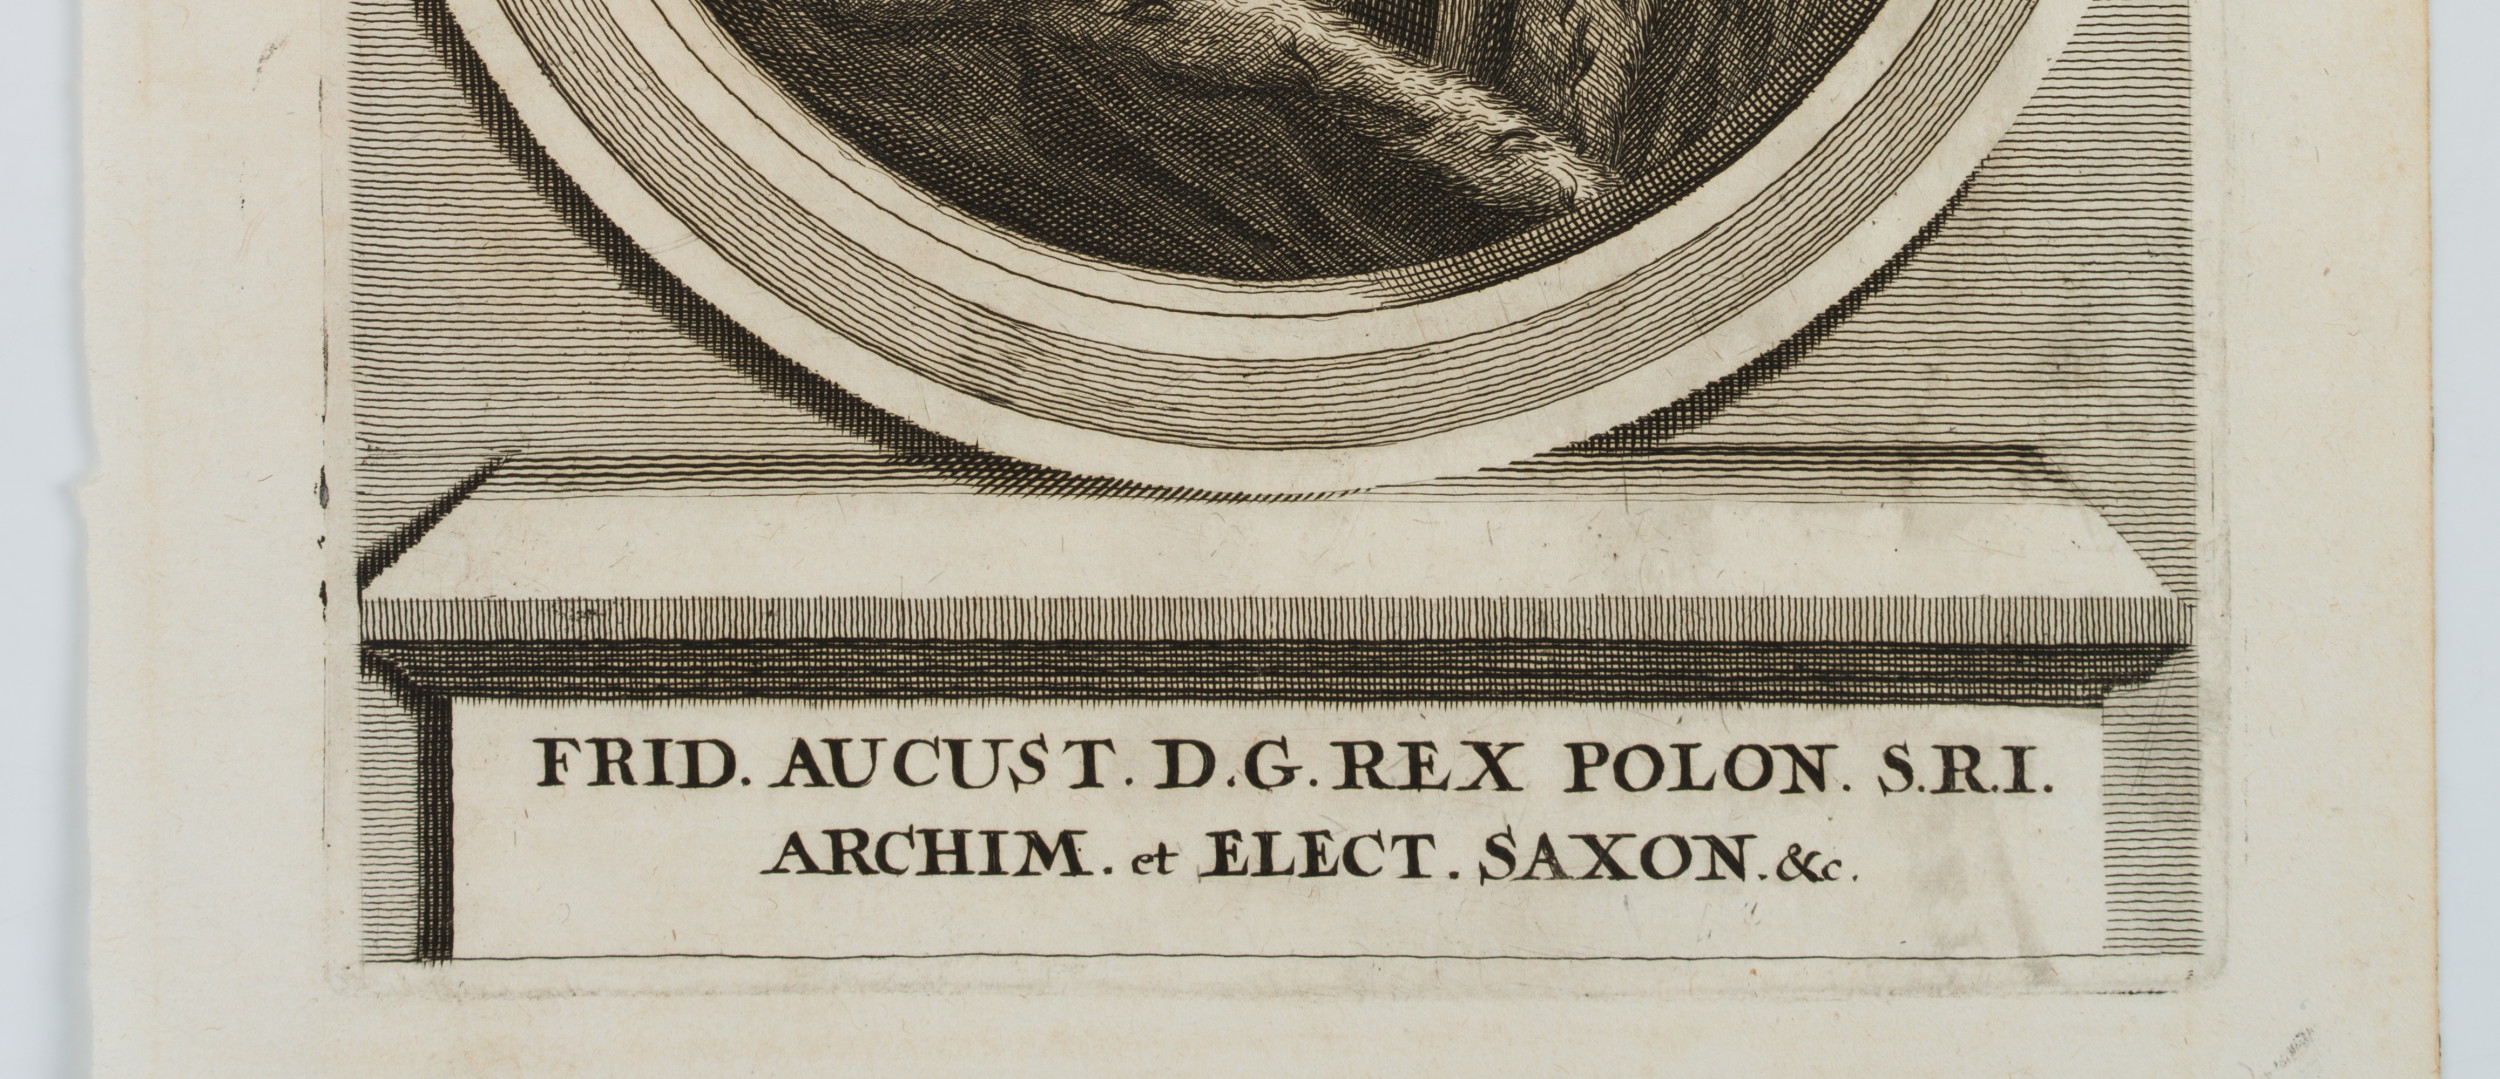 FRID. AUCUST. D.G. REX POLON. S.R.I.
ARCHIM. et ELECT. SAXON. &c.